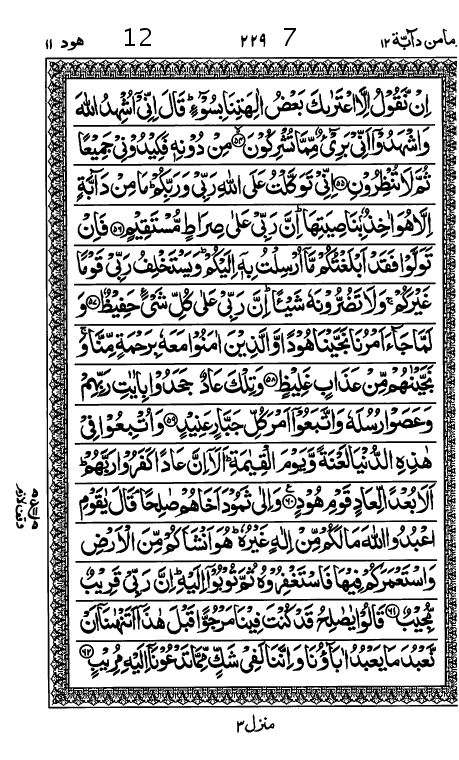 ومامن دآبّة ۱۲ 7 ۲۲۹ 12 هود ۱۱
اِنْ نَّقُوْلُ اِلَّا اعْتَرٰىكَ بَعْضُ اٰلِهَتِنَا بِسُوْٓءٍ ؕ قَالَ اِنِّىْۤ اُشْهِدُ اللّٰهَ
وَاشْهَدُوْۤا اَنِّىْ بَرِىْٓءٌ مِّمَّا تُشْرِكُوْنَ ۙ۵۴ مِنْ دُوْنِهٖ فَكِيْدُوْنِىْ جَمِيْعًا
ثُمَّ لَا تُنْظِرُوْنِ ۵۵ اِنِّىْ تَوَكَّلْتُ عَلَى اللّٰهِ رَبِّىْ وَرَبِّكُمْ ؕ مَا مِنْ دَآبَّةٍ
اِلَّا هُوَ اٰخِذٌۢ بِنَاصِيَتِهَا ؕ اِنَّ رَبِّىْ عَلٰى صِرَاطٍ مُّسْتَقِيْمٍ ۵۶ فَاِنْ
تَوَلَّوْا فَقَدْ اَبْلَغْتُكُمْ مَّاۤ اُرْسِلْتُ بِهٖۤ اِلَيْكُمْ ؕ وَيَسْتَخْلِفُ رَبِّىْ قَوْمًا
غَيْرَكُمْ ۚ وَلَا تَضُرُّوْنَهٗ شَيْئًا ؕ اِنَّ رَبِّىْ عَلٰى كُلِّ شَىْءٍ حَفِيْظٌ ۵۷ وَ
لَمَّا جَآءَ اَمْرُنَا نَجَّيْنَا هُوْدًا وَّالَّذِيْنَ اٰمَنُوْا مَعَهٗ بِرَحْمَةٍ مِّنَّا ۚ وَ
نَجَّيْنٰهُمْ مِّنْ عَذَابٍ غَلِيْظٍ ۵۸ وَتِلْكَ عَادٌ ۙ جَحَدُوْا بِاٰيٰتِ رَبِّهِمْ
وَعَصَوْا رُسُلَهٗ وَاتَّبَعُوْۤا اَمْرَ كُلِّ جَبَّارٍ عَنِيْدٍ ۵۹ وَاُتْبِعُوْا فِىْ
هٰذِهِ الدُّنْيَا لَعْنَةً وَّيَوْمَ الْقِيٰمَةِ ؕ اَلَاۤ اِنَّ عَادًا كَفَرُوْا رَبَّهُمْ ؕ
اَلَا بُعْدًا لِّعَادٍ قَوْمِ هُوْدٍ ۶۰ وَاِلٰى ثَمُوْدَ اَخَاهُمْ صٰلِحًا ۘ قَالَ يٰقَوْمِ
اعْبُدُوا اللّٰهَ مَا لَكُمْ مِّنْ اِلٰهٍ غَيْرُهٗ ؕ هُوَ اَنْشَاَكُمْ مِّنَ الْاَرْضِ
وَاسْتَعْمَرَكُمْ فِيْهَا فَاسْتَغْفِرُوْهُ ثُمَّ تُوْبُوْۤا اِلَيْهِ ؕ اِنَّ رَبِّىْ قَرِيْبٌ
مُّجِيْبٌ ۶۱ قَالُوْا يٰصٰلِحُ قَدْ كُنْتَ فِيْنَا مَرْجُوًّا قَبْلَ هٰذَاۤ اَتَنْهٰىنَاۤ اَنْ
نَّعْبُدَ مَا يَعْبُدُ اٰبَآؤُنَا وَاِنَّنَا لَفِىْ شَكٍّ مِّمَّا تَدْعُوْنَاۤ اِلَيْهِ مُرِيْبٍ ۶۲
منزل ۳